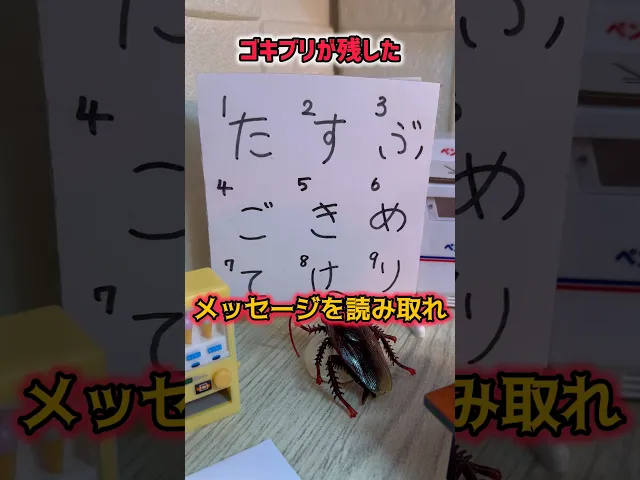 ゴキブリが残した
1 2 3
た す ぶ
4 5 6
ご き め
7 8 9
て け り
メッセージを読み取れ